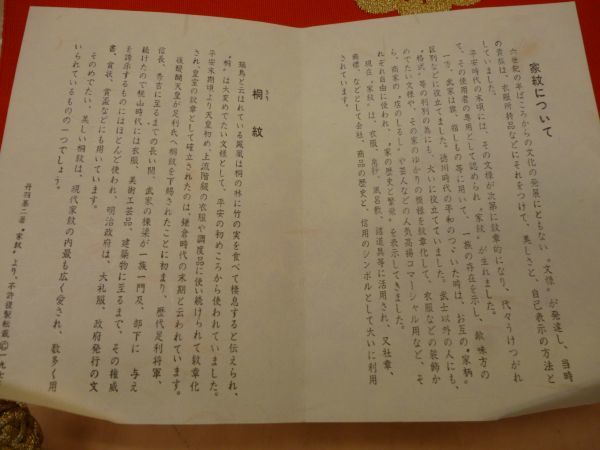 家紋について
六世紀の半ばころからの文化の発展にともない〝文様〟が発達し、当時
の貴族は、衣服所持品などにそれをつけて、美しさと、自己表示の方法と
していました。
平安時代の末頃には、その文様が次第に紋章的になり、代々うけつがれ
て、その使用者の専用として認められ〝家紋〟が生れました。
一方、武家は旗、指しもの等に用いて、一族の存在を示し、敵味方の
区別などに役立てました。徳川時代の平和のつゞいた時は、お互の〝家柄〟
〝格式〟等の判別の為にも、大いに役立てていました。武士以外の人にも、
めでたい文様や、その家のゆかりの模様を紋章化して、衣服などの装飾か
ら、商家の〝店のしるし〟や芸人などの人気高揚コマーシャル用など、そ
れぞれ自由に使われ、〝家の歴史と繁栄〟を表示してきました。
現在〝家紋〟は、衣服、帛紗、風呂敷、諸道具等に活用され、又社章、
商標、などとして会社、商品の歴史と、信用のシンボルとして大いに利用
されています。
桐紋
きり
瑞鳥と云はれている鳳凰は桐の林に竹の実を食べて棲息すると伝えられ、
〝桐〟は大変めでたい文様として、平安の初めころから使われていました。
平安末期頃より天皇初め、上流階級の衣服や調度品に使い続けられて紋章化
され、皇室の紋章として確立されたのは、鎌倉時代の末期と云われています。
後醍醐天皇が足利氏へ桐紋を下賜されたことに初まり、歴代足利将軍、
信長、秀吉に至るまでの長い間、武家の棟梁が一族一門及、部下に 与え
続けたので桃山時代には衣服、美術工芸品、建築物に至るまで、その権威
を誇示するものにはほとんど使われ、明治政府は、大礼服、政府発行の文
書、賞状、賞盃などにも用いています。
そのめでたい、美しい桐紋は、現代家紋の内最も広く愛され、数多く用
いられているものの一つでしょう。
丹羽基二著〝家紋〟より、不許複製転載Ⓒ一九七